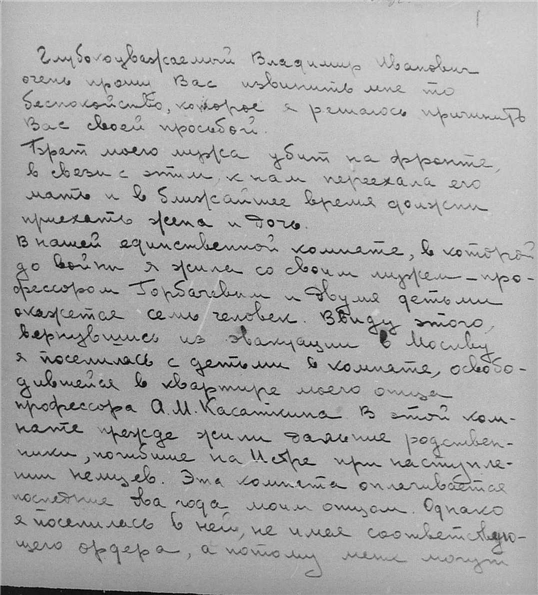 1
Глубокоуважаемый Владимир Иванович
очень прошу Вас извинить мне то
беспокойство, которое я решаюсь причинить
Вас своей просьбой.
Брат моего мужа убит на фронте,
в связи с этим к нам переехала его
мать и в ближайшее время должны
приехать жена и дочь.
В нашей единственной комнате, в которой
до войны я жила со своим мужем – про-
фессором Горбачевым и двумя детьми
окажется семь человек. Ввиду этого,
вернувшись из эвакуации в Москву
я поселилась с детьми в комнате, освобо-
дившейся в квартире моего отца
профессора А.М. Касаткина В этой ком-
нате прежде жили дальние родствен-
ники, погибшие на Истре при наступле-
нии немцев. Эта комната оплачивается
последние два года моим отцом. Однако
я поселилась в ней, не имея соответствую-
щего ордера, а потому меня могут